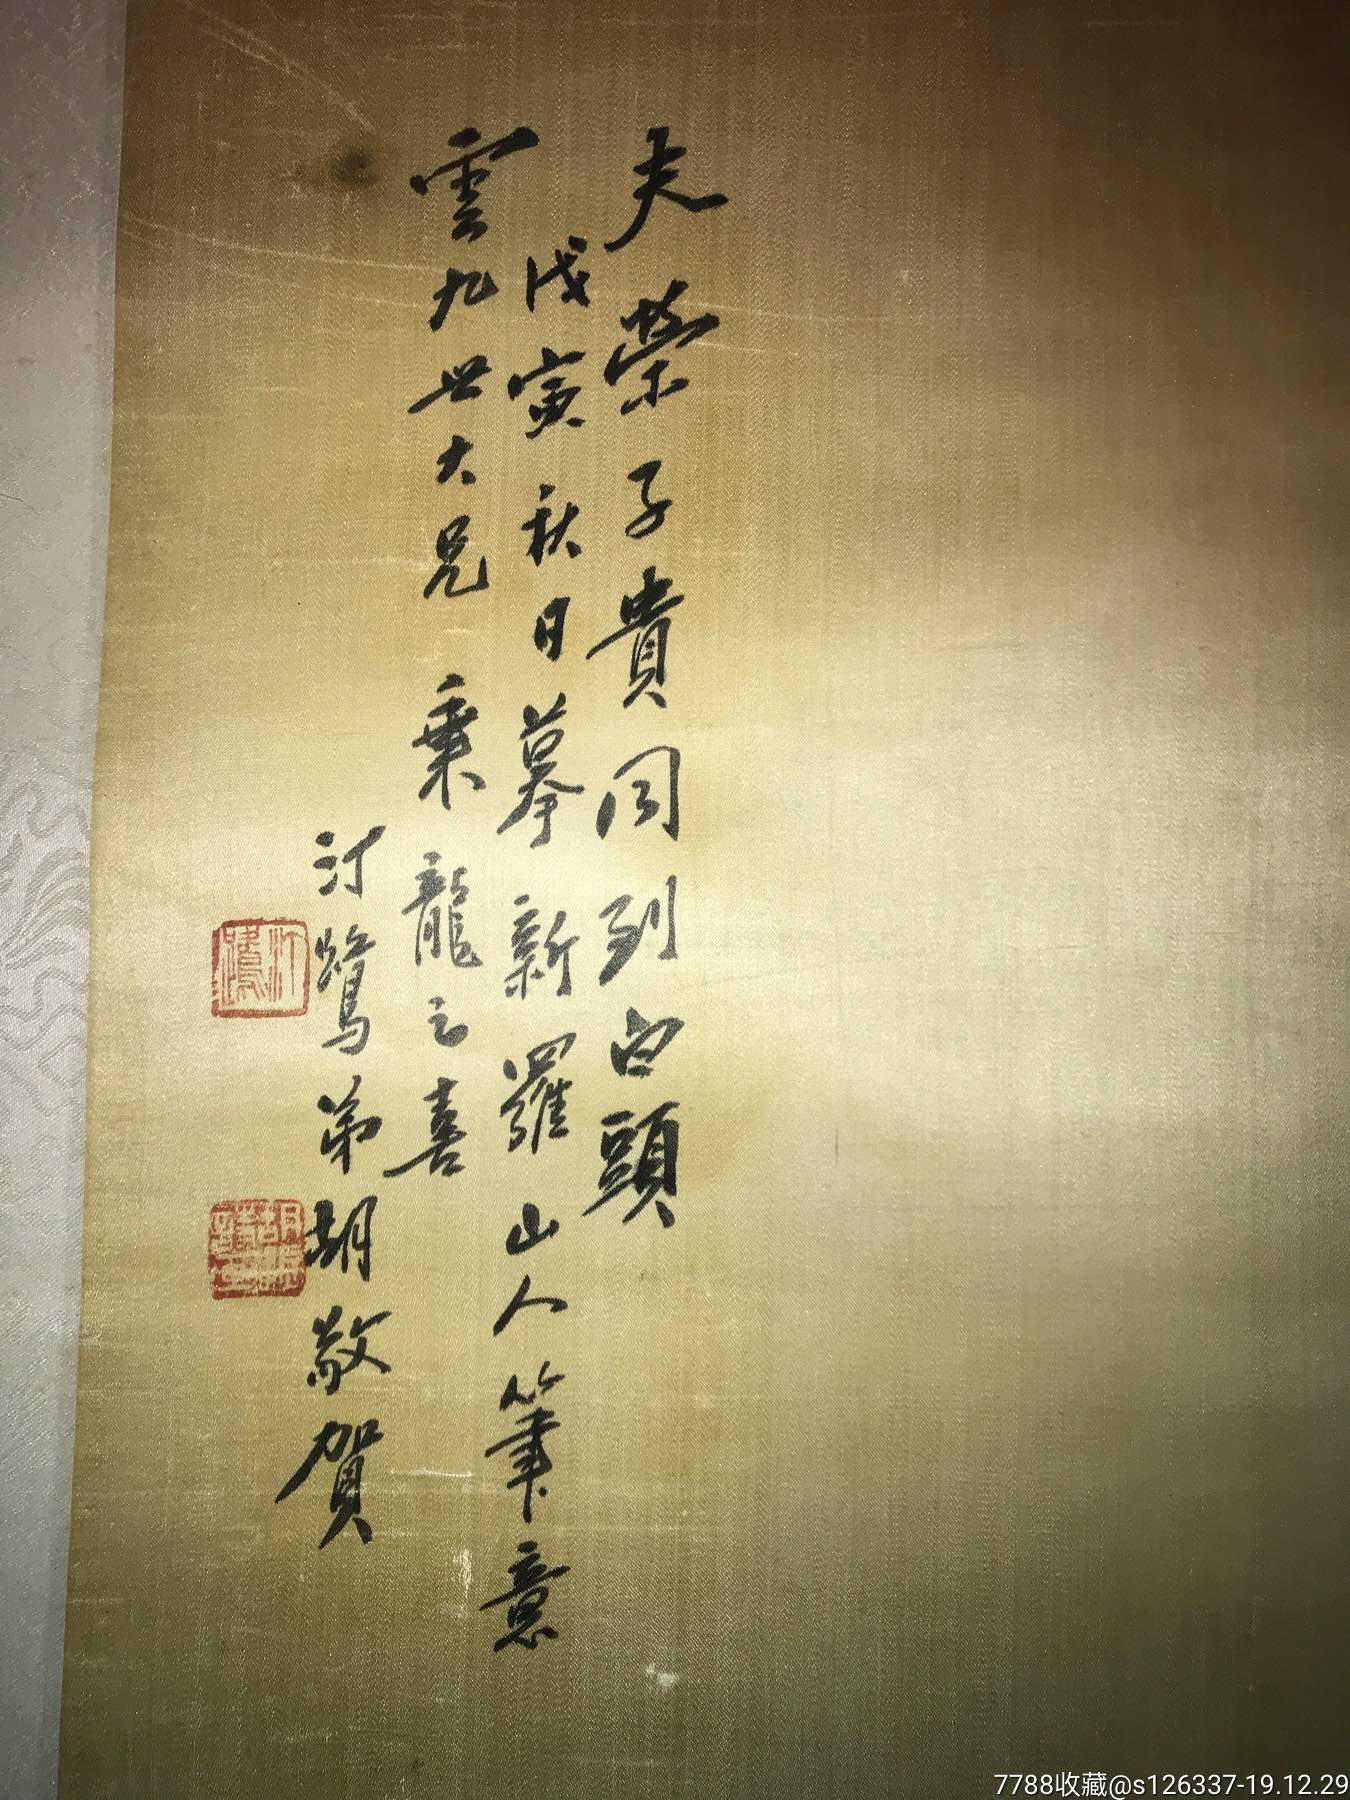 夫榮子貴同到白頭
戊寅秋日摹新羅山人筆意
雲九世大兄乘龍之喜
汀鷺弟胡敬賀
汀鷺
7788收藏@s126337-19.12.29